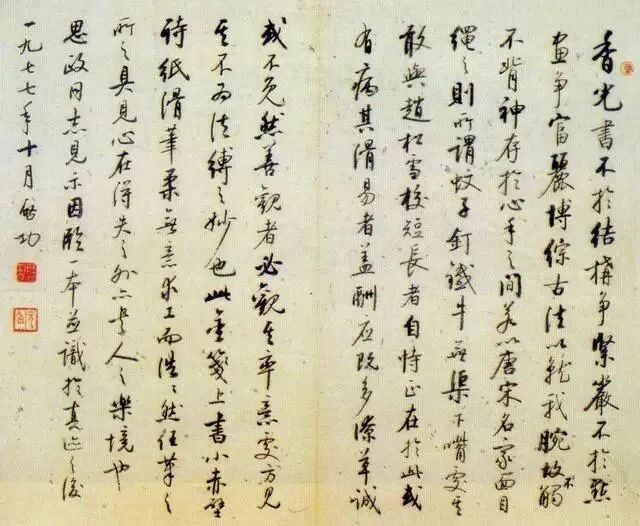 香光書不於結構爭緊嚴不於點
畫爭富麗博綜古法以就我腕故不觸
不背神存於心手之間若以唐宋名家面目
繩之則所謂蚊子釘鐵牛無渠下嘴處其
敢與趙松雪校短長者自恃正在於此或
有病其滑易者蓋酬應既多潦草誠
或不免然善觀者必觀其率意處方見
其不為法縛之妙也此金箋上書小赤壁
詩紙滑筆柔無意求工而浩々然任筆之
所之具見心在得失之外亦是人之樂境也
思政同志見示因臨一本並識於真迹之後
一九七七年十月啟功